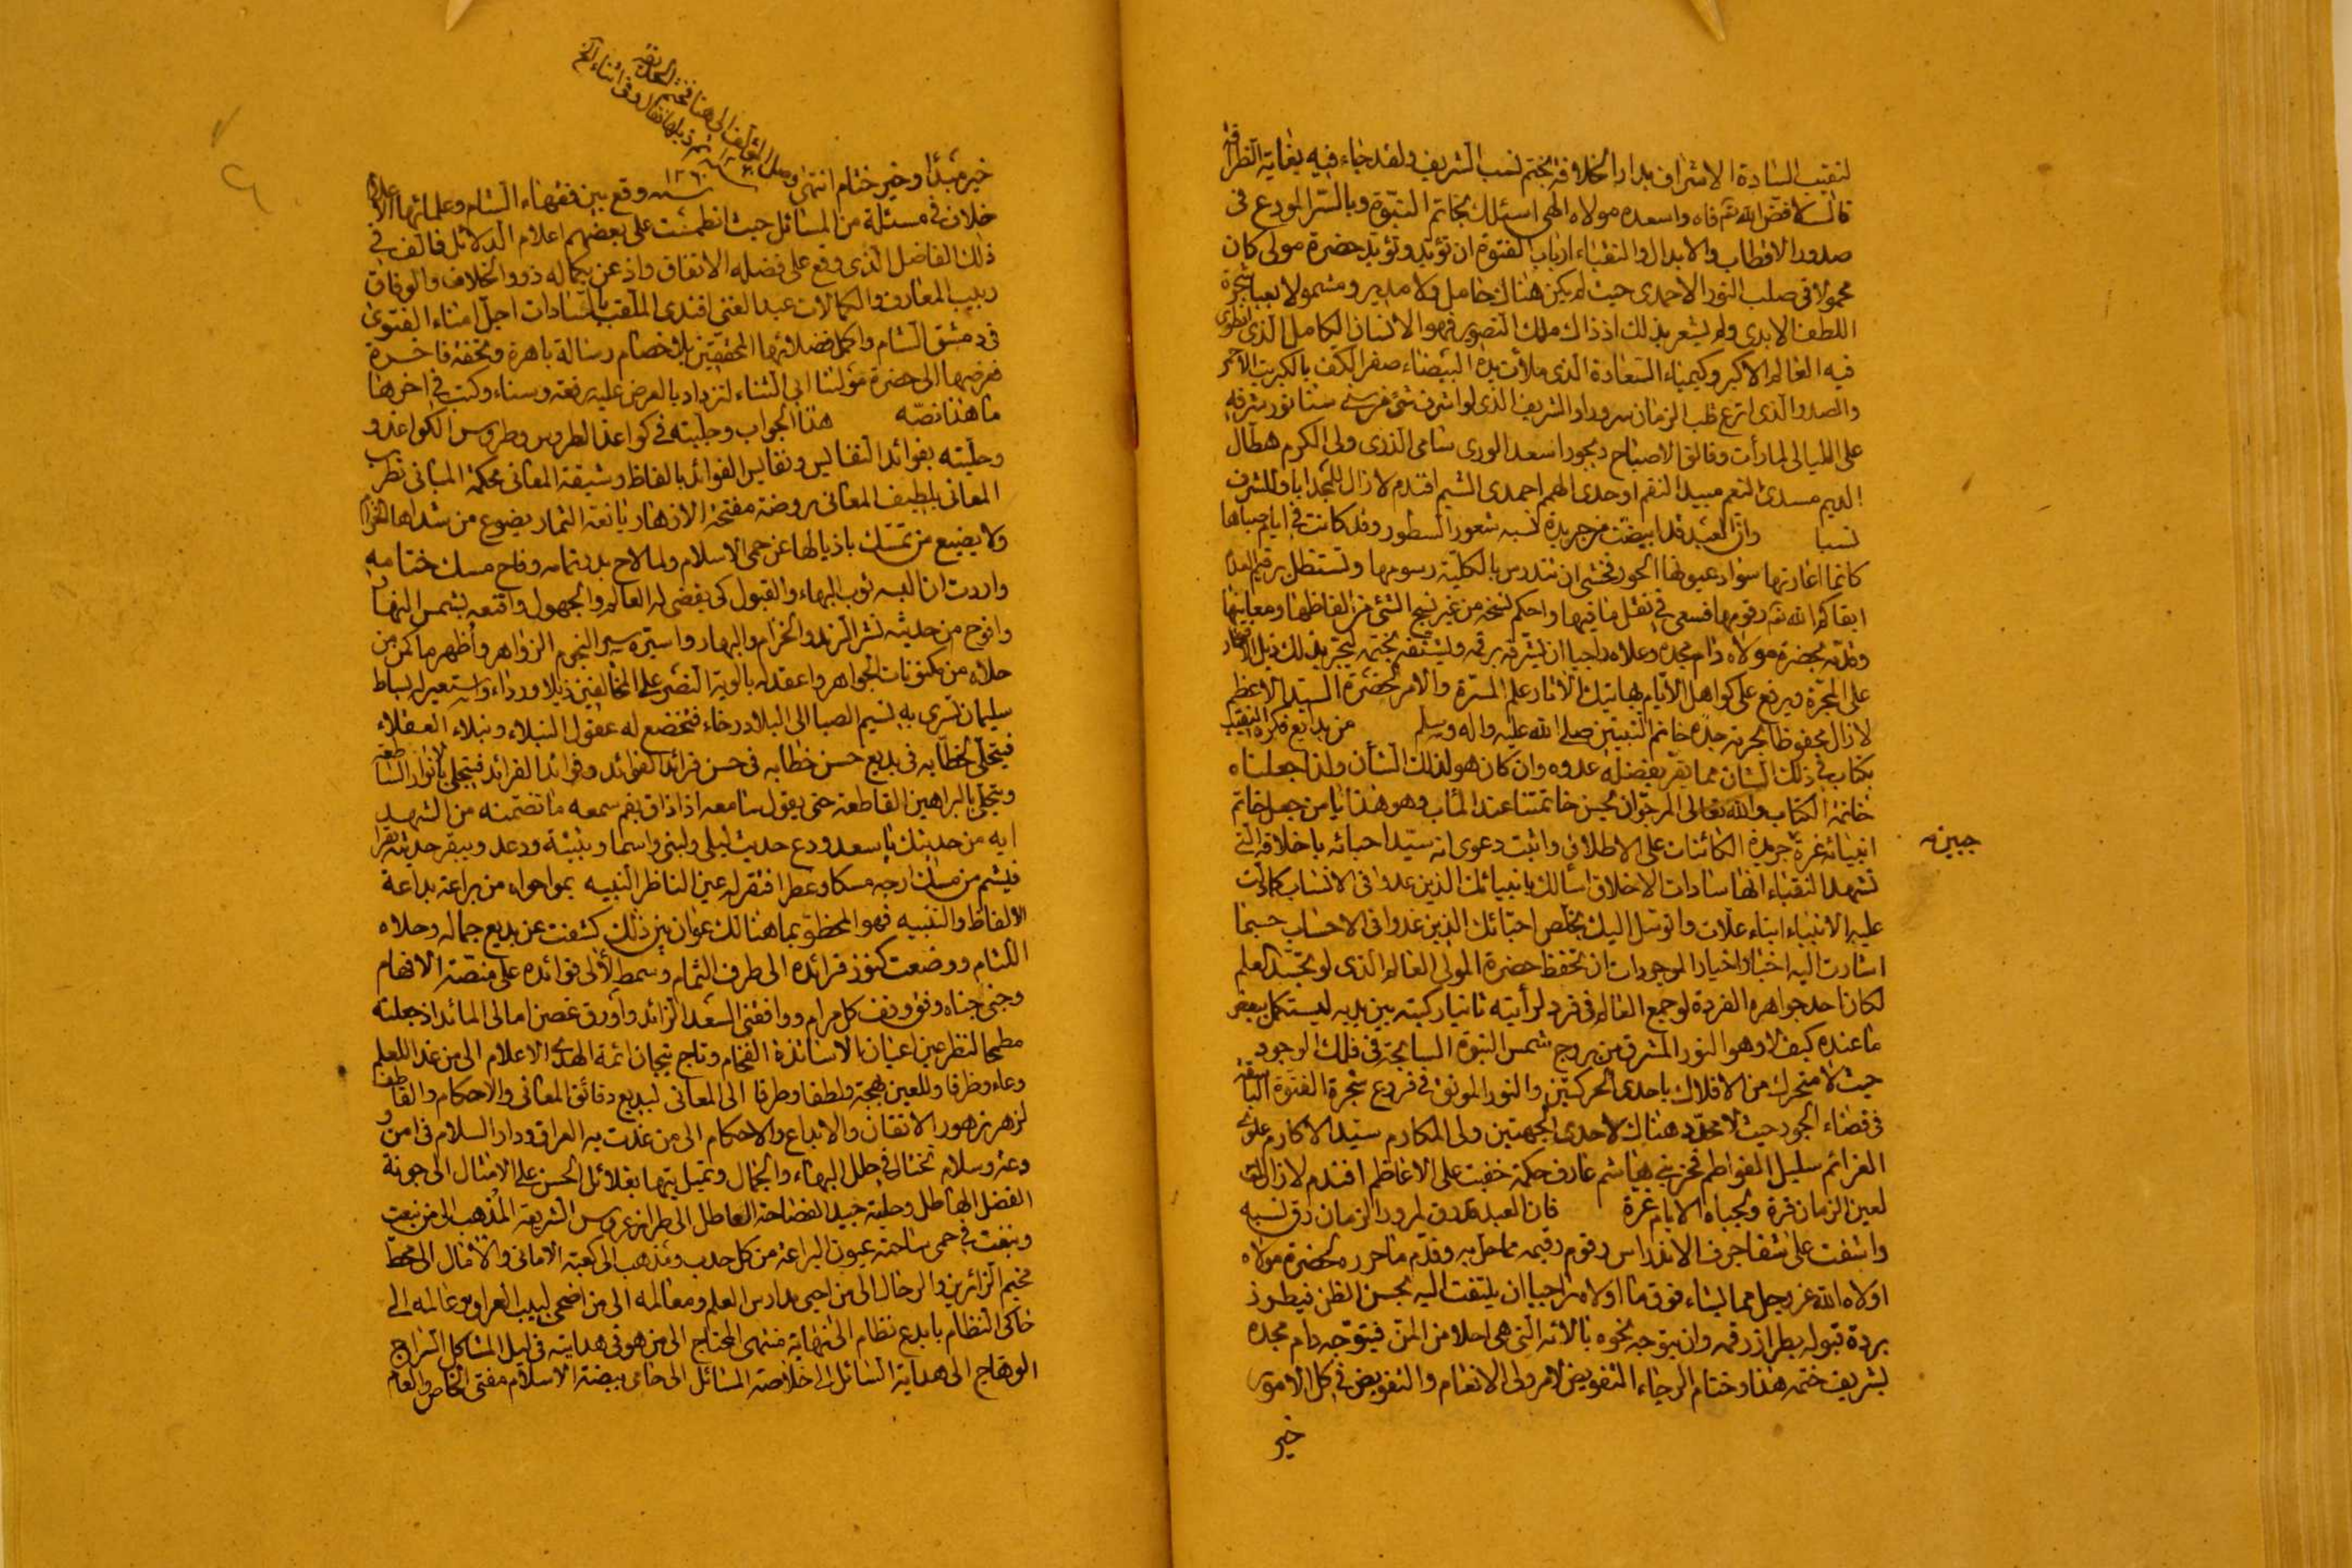 لنقيب السادة الاشراف بدار الخلافة بختم نسب الشريف ولقد جاء فيه بغاية الظرافة
فاه واسعده مولاه الهى اسئلك بخاتم النبوة وبالسر المودع فى
صدور الاقطاب والابدال والنقباء ارباب الفتوة ان تؤيد وتؤبد حضرة مولى كان
محمولا فى صلب النور الاحمدى حيث لم يكن هناك حامل ولا مدبر ومشمولا بعبا شجرة
اللطف الابدى ولم يشعر بذلك اذ ذاك ملك التصوير فهو الانسان الكامل الذى انطوى
فيه العالم الاكبر وكيمياء السعادة الذى ملأت يده البيضاء صفر الكف بالكبريت الاحمر
والصدر الذى اترع قلب الزمان سرورا والشريف الذى لو اشرف شئ من سنا نور شرفه
على الليالى لما رأت وفالق الاصباح ديجورا سعد الورى سامى الذرى ولى الكرم هطال
الديم مسدى النعم مبيد النقم اوحدى الهمم احمدى الشيم افندم لا زال للمجد ابا وللشرف
نسبا وان العبد قد ابيضت من جريدة نسبه شعور السطور وقد كانت فى ايام صباها
كانما اعارتها سواد عيونها الحور فخشى ان تندرس بالكلية رسومها وتستظل برقيم العدم
ابقاكم الله رقومها فسعى فى نقل ما فيها واحكم نسخه من غير نسخ لشئ من الفاظها ومعانيها
وقدمه لحضرة مولاه دام مجده وعلاه راجيا ان يشرفه برقمه ويشنفه بختمه ليجر بذلك ذيل الافتخار
على المجرة ويرفع على كواهل الايام بهاتيك الآثار علم المسرة والامر لحضرة السيد الاعظم
لا زال محفوظا بحرمة جده خاتم النبيين صلى الله عليه واله وسلم من بدايع فكره النقيب
بكتاب فى ذلك الشان مما يقر بفضله عدوه وان كان هو لذلك الشأن ولذا جعلناه
خاتمة الكتاب والله تعالى المرجو ان يحسن خاتمتنا عند المآب وهو هذا يا من جعل خاتم
انبيائه غرة جريدة الكائنات على الاطلاق واثبت دعوى انه سيد احبائه باخلاقه التى
تشهد النقباء انها سادات الاخلاق اسألك بانبيائك الذين غدوا فى الانساب كما دلت
عليه الانبياء ابناء علات واتوسل اليك بخلص احبائك الذين غدوا فى الاحساب حسبما
اشارت اليه اخبار اخيار الموجودات ان تحفظ حضرة المولى العالم الذى لو تجسد العلم
لكان احد جواهره الفردة لو جمع العالم فى فرد لرأيته ثانيا ركبته بين يديه ليستكمل بعض
ما عنده كيف لا وهو النور المشرق من بروج شمس النبوة السابحة فى فلك الوجود
حيث لا متحرك من الافلاك باحدى الحركتين والنور المونق فى فروع شجرة الفتوة الباسقة
فى فضاء الجود حيث لا محدد هناك لاحدى الجهتين ولى المكارم سيد الاكارم علوى
العزائم سليل الفواطم فخر بنى هاشم عارف حكمة خفيت على الاعاظم افندم لا زال
لعين الزمان قرة ولجباه الايام غرة فان العبد قد رق لمرور الزمان رق نسبه
واشفت على شفا جرف الاندراس رقوم رقيمه مما حل به وقدم ما حرره لحضرة مولاه
اولاه الله عز وجل مما يشاء فوق ما اولاه راجيا ان يلتفت اليه بحسن الظن فيطرز
بردة قبوله بطراز رقمه وان يتوجه نحوه بآلائه التى هى احلا من المن فيتوجه دام مجده
بشريف ختمه هذا وختام الرجاء التفويض لامر ولى الانعام والتفويض فى كل الامور
خير
جبين
خير مبتدأ وخير ختام انتهى
وصل المؤلف الى هنا فختم الحديقة
ثم ذيلها فقال وفى اثناء
سنة ١٢٦٠ وقع بين فقهاء الشام وعلمائها الاعلام
خلاف فى مسئلة من المسائل حيث انطمست على بعضهم اعلام الدلائل فالف فى
ذلك الفاضل الذى وقع على فضله الاتفاق واذعن بكماله ذوو الخلاف والوفاق
ربيب المعارف والكمالات عبد الغنى افندى الملقب بالسادات اجل امناء الفتوى
فى دمشق الشام واكمل فضلائها المحققين بلا خصام رسالة باهرة وتحفة فاخرة
فعرضها الى حضرة مؤلنا ابى الثناء لتزداد بالعرض عليه رفعة وسناء وكتب فى اخرها
ما هذا نصه هذا الجواب وجلبته فى كواغد الطروس وطروس الكواغد و
وحليته بفوائد النفايس ونفايس الفوائد بالفاظ رشيقة المعانى محكمة المبانى تطرب
المعانى بلطيف المعانى روضة مفتحة الازهار يانعة الثمار يضوع من شذاها الخزام
ولا يضيع من تمسك باذيالها عن حمى الاسلام ولما لاح بدر تمامه وفاح مسك ختامه
واردت ان البسه ثوب البهاء والقبول كى يفضى له العالم والجهول واقنعه بشمس النهار
وافوح من حديثه نشر الرند والخزام والبهار واسيره سير النجوم الزواهر واظهر ما كمن من
حلاه من مكنونات الجواهر واعقد له بالوية النصر على المخالفين ذيلا ورداء واستعير له بساط
سليمان تسرى به نسيم الصبا الى البلاد رخاء فتخضع له عقول النبلاء ونبلاء العقلاء
فيتحلى لخطابه فى بديع حسن خطابه فى حسن فرائد الفوائد وفوائد الفرائد فيتجلى بانوار الساطعة
ويتحلى بالبراهين القاطعة حتى يقول سامعه اذا ذاق بفم سمعه ما تضمنه من الشهد
ايه من حديثك يا سعد ودع حديث ليلى ولبنى واسما وبثينة ودعد ويبقر حديثه
فيشم من مسك ارجه مسكا وعطرا فتقر له عين الناظر النبيه بما حواه من براعة بداعة
الالفاظ والتنبيه فهو المحظو بما هنالك عوان بين ذلك كشفت عن بديع جماله وحلاه
اللثام ووضعت كنوز فرائده الى طرف الثمام وسمط لألى فوائده على منصة الافهام
وجنى جناه وفق وقف كل مرام ووافقنى السعد الزائد واورق غصن امالى المائد اذ جعلته
مطمحا لنظر عين اعيان الاساتذة الفخام وتاج تيجان ائمة الهدى الاعلام الى من غدا للعلم
وعاء وظرفا وللعين بهجة ولطفا وطرفا الى المعانى لبديع دقائق المعانى والاحكام والقاطف
لزهر زهور الاتقان والابداع والاحكام الى من غدت به العراق ودار السلام فى امن و
دعة وسلام تختال فى حلل البهاء والجمال وتميل تيها بغلائل الحسن على الامثال الى جونة
الفضل الهاطل وحلية جيد الفضاحة العاطل الى طراز عروس الشريعة المذهب الى من نبعت
ونبغت فى حمى ساحته عيون البراعة من كل حدب ومذهب الى كعبة الامانى والآمال الى محط
مخيم الزائرين والرحال الى من احيى مدارس العلم ومعالمه الى من اضحى لبيب العراق وعالمه الى
حاكى النظام بابدع نظام الى نهاية منتهى المحتاج الى من هو فى هدايته فى ليل المشاكل السراج
الوهاج الى هداية السائل الى خلاصة المسائل الى حامى بيضة الاسلام مفتى الخاص والعام